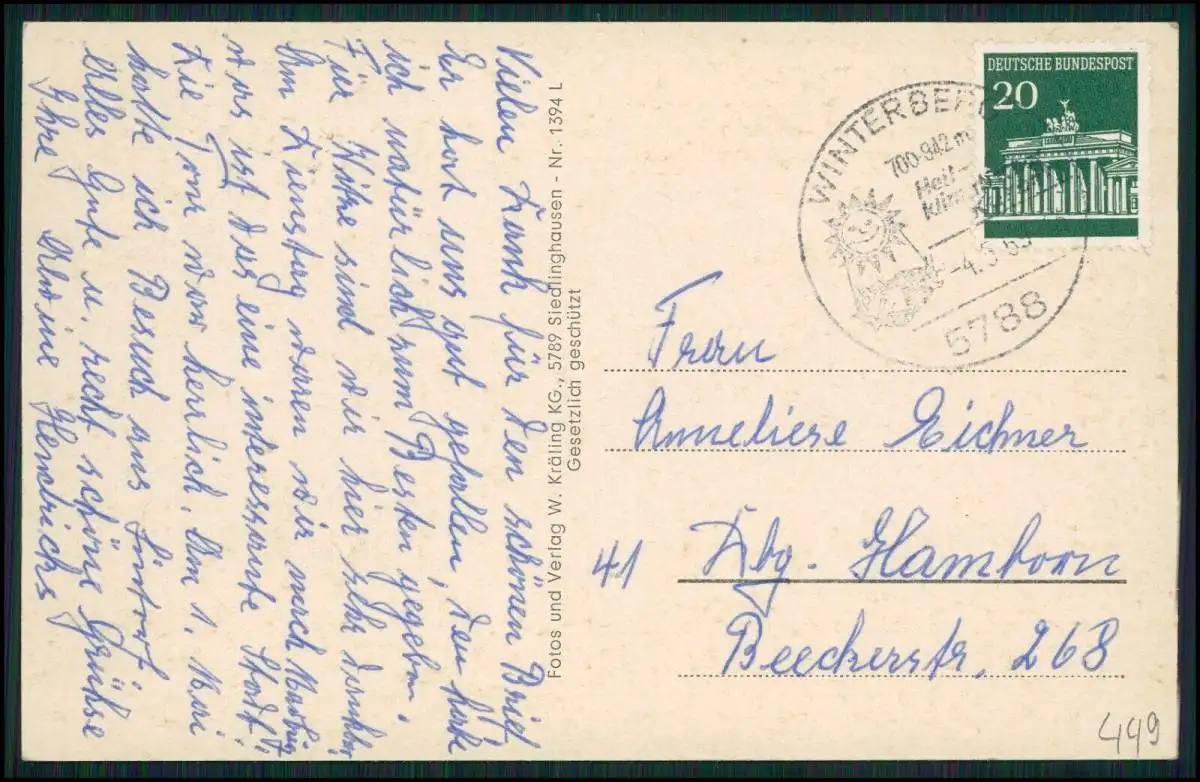 Vielen Dank für den schönen Brief
Er hat uns gut gefallen, den habe
ich natürlich zum Besten gegeben.
Für Höhe sind wir hier sehr dankbar
Am Dienstag waren wir nach Marburg
das ist das eine interessante Stadt!!
Die Tour war herrlich. Am 1. Mai
hatte ich Besuch aus
Alles Gute u. recht schöne Grüsse
Ihre Alwine Hendrichs
Fotos und Verlag W. Kräling KG., 5789 Siedlinghausen - Nr. 1394 L
Gesetzlich geschützt
DEUTSCHE BUNDESPOST
20
WINTERBERG
700-842 m
Heil-
klima
-4.5.69
5788
Frau
Anneliese Eichner
41 Dbg. Hamborn
Beeckerstr. 268
449